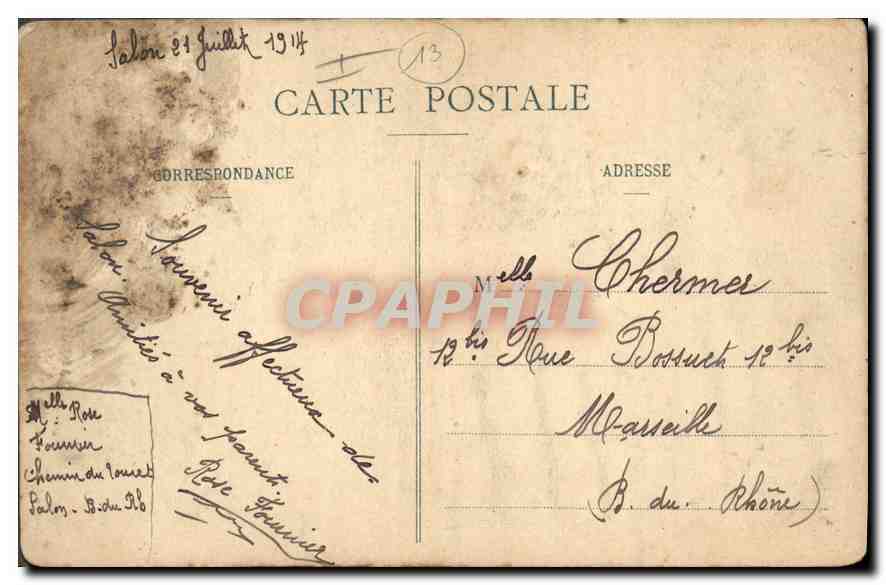 Salon 21 Juillet 1914
13
CARTE POSTALE
CORRESPONDANCE
ADRESSE
Souvenir affectueux de
Salon. Amitiés à vos parents.
Rose Fournier
Melle Rose
Fournier
Chemin du
Salon - B. du Rh
Melle Chermer
12 bis Rue Bossuet 12 bis
Marseille
(B. du Rhône)
CPAPHIL